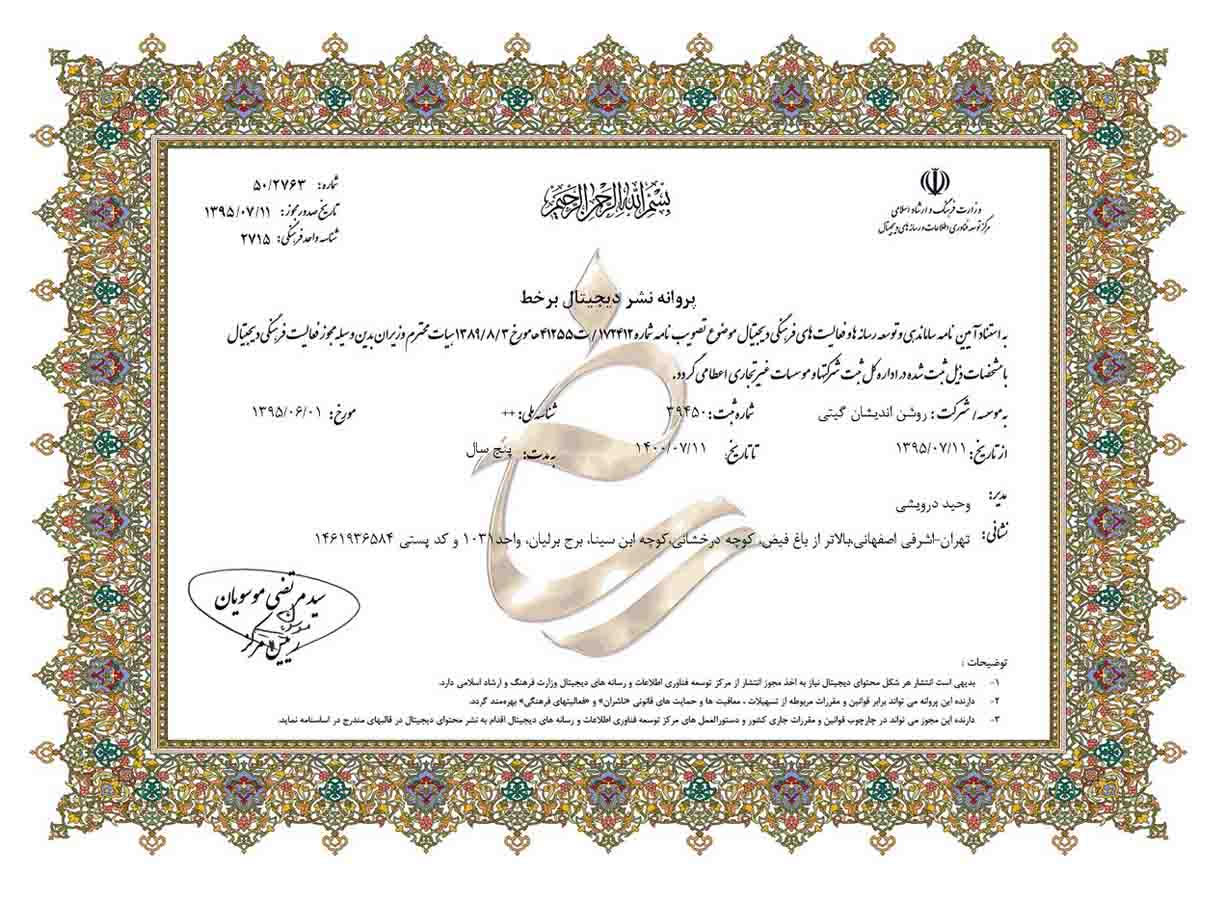 وزارت فرهنگ و ارشاد اسلامی
مرکز توسعه فناوری اطلاعات و رسانه های دیجیتال
بسم الله الرحمن الرحیم
شماره: ۵۰/۲۷۶۳
تاریخ صدور مجوز: ۱۳۹۵/۰۷/۱۱
شناسه واحد فرهنگی: ۲۷۱۵
پروانه نشر دیجیتال برخط
به استناد آیین نامه ساماندهی و توسعه رسانه ها و فعالیت های فرهنگی دیجیتال موضوع تصویب نامه شماره ۱۷۲۴۱۲/ت۴۱۲۵۵ه مورخ ۱۳۸۹/۸/۳ هیات محترم وزیران بدین وسیله مجوز فعالیت فرهنگی دیجیتال
با مشخصات ذیل ثبت شده در اداره کل ثبت شرکتها و موسسات غیر تجاری اعطا می گردد.
به موسسه/ شرکت: روشن اندیشان گیتی شماره ثبت: ۳۹۴۵۰ شناسه ملی: ++ مورخ: ۱۳۹۵/۰۶/۰۱
از تاریخ: ۱۳۹۵/۰۷/۱۱ تا تاریخ: ۱۴۰۰/۰۷/۱۱ به مدت: پنج سال
مدیر: وحید درویشی
نشانی: تهران-اشرفی اصفهانی،بالاتر از باغ فیض، کوچه درخشانی،کوچه ابن سینا، برج برلیان، واحد۱۰۳۱ و کد پستی ۱۴۶۱۹۳۶۵۸۴
سید مرتضی موسویان
رییس مرکز
توضیحات :
۱- بدیهی است انتشار هر شکل محتوای دیجیتال نیاز به اخذ مجوز انتشار از مرکز توسعه فناوری اطلاعات و رسانه های دیجیتال وزارت فرهنگ و ارشاد اسلامی دارد.
۲- دارنده این پروانه می تواند برابر قوانین و مقررات مربوطه از تسهیلات ، معافیت ها و حمایت های قانونی «ناشران» و «فعالیتهای فرهنگی» بهره‌مند گردد.
۳- دارنده این مجوز می تواند در چارچوب قوانین و مقررات جاری کشور و دستورالعمل های مرکز توسعه فناوری اطلاعات و رسانه های دیجیتال اقدام به نشر محتوای دیجیتال در قالبهای مندرج در اساسنامه نماید.